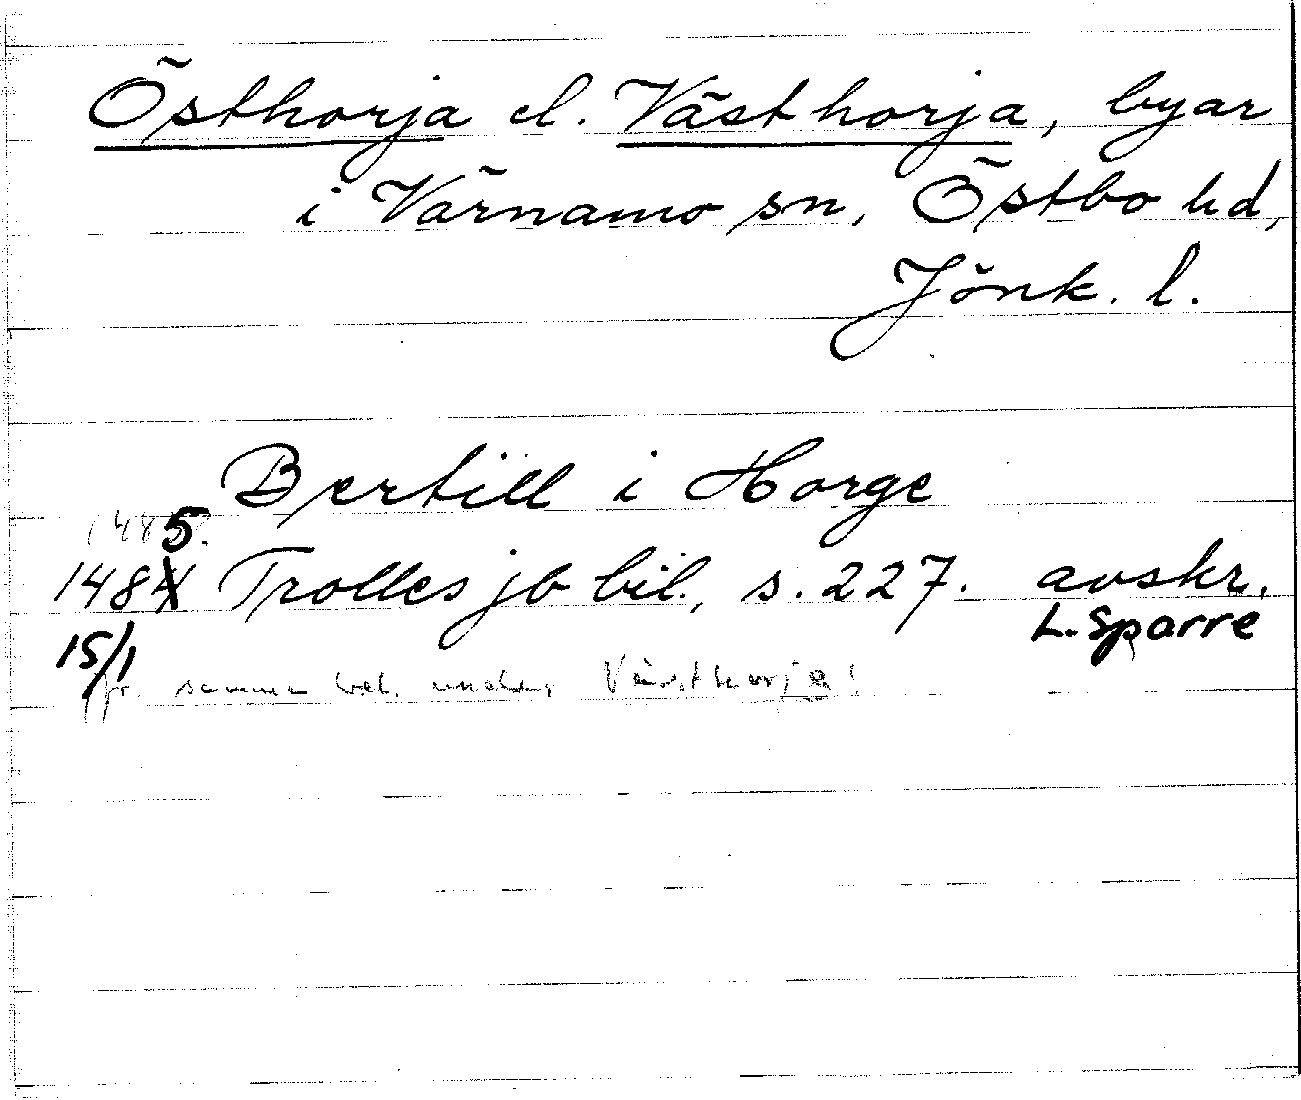 Östhorja el. Västhorja, byar
i Värnamo sn, Östbo hd,
Jönk. l.
Bertill i Horge
1485.
1484 Trolles jb bil., s. 227. avskr.
L. Sparre
15/1
jfr. samma bel. under Västhorja!